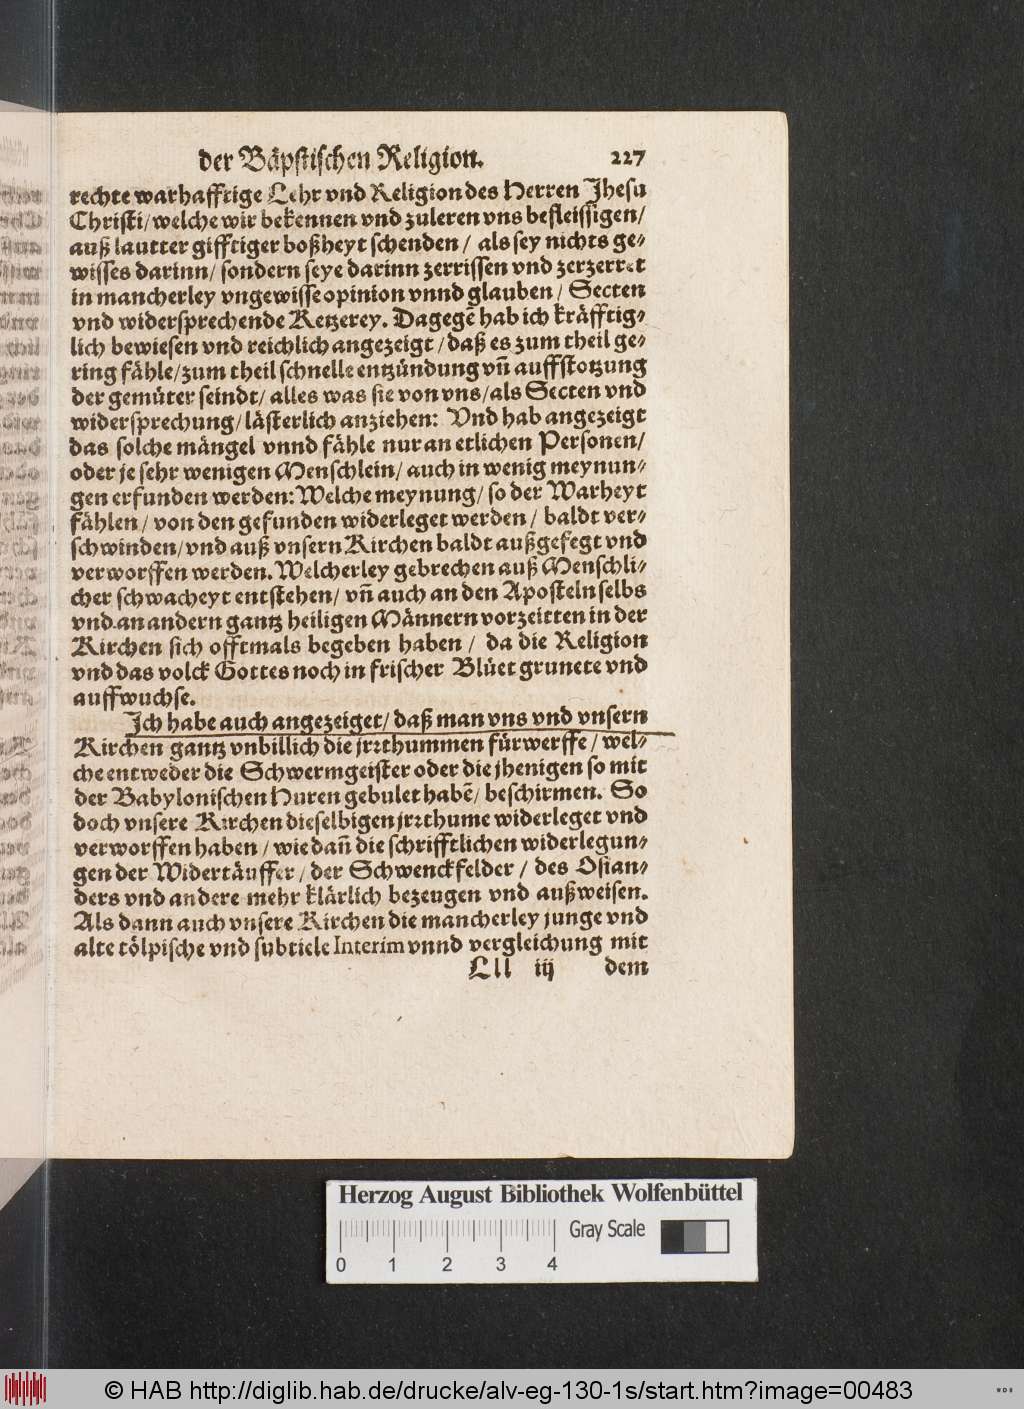 der Bäpstischen Religion. 227
rechte warhafftige Lehr vnd Religion des Herren Jhesu
Christi/welche wir bekennen vnd zuleren vns befleissigen/
auß lautter gifftiger boßheyt schenden/ als sey nichts ge-
wisses darinn/ sondern seye darinn zerrissen vnd zerzerret
in mancherley vngewisse opinion vnnd glauben/ Secten
vnd widersprechende Ketzerey. Dagegē hab ich kräfftig-
lich bewiesen vnd reichlich angezeigt/daß es zum theil ge-
ring fähle/zum theil schnelle entzündung vn̄ auffstotzung
der gemüter seindt/ alles was sie von vns/als Secten vnd
widersprechung/ lästerlich anziehen: Vnd hab angezeigt
das solche mängel vnnd fähle nur an etlichen Personen/
oder je sehr wenigen Menschlein/ auch in wenig meynun-
gen erfunden werden: Welche meynung/ so der Warheyt
fählen/ von den gefunden widerleget werden/ baldt ver-
schwinden/vnd auß vnsern Kirchen baldt außgefegt vnd
verworffen werden. Welcherley gebrechen auß Menschli-
cher schwacheyt entstehen/ vn̄ auch an den Aposteln selbs
vnd an andern gantz heiligen Männern vorzeitten in der
Kirchen sich offtmals begeben haben/ da die Religion
vnd das volck Gottes noch in frischer Blüet grunete vnd
auffwuchse.
Ich habe auch angezeiget/ daß man vns vnd vnsern
Kirchen gantz vnbillich die jrꝛthummen fürwerffe/ wel-
che entweder die Schwermgeister oder die jhenigen so mit
der Babylonischen Huren gebulet habē/ beschirmen. So
doch vnsere Kirchen dieselbigen jrꝛthume widerleget vnd
verworffen haben/ wie dan̄ die schrifftlichen widerlegun-
gen der Widertäuffer/ der Schwenckfelder/ des Osian-
ders vnd andere mehr klärlich bezeugen vnd außweisen.
Als dann auch vnsere Kirchen die mancherley junge vnd
alte tölpische vnd subtiele Interim vnnd vergleichung mit
Lll iij dem
Herzog August Bibliothek Wolfenbüttel
Gray Scale
0 1 2 3 4
© HAB http://diglib.hab.de/drucke/alv-eg-130-1s/start.htm?image=00483